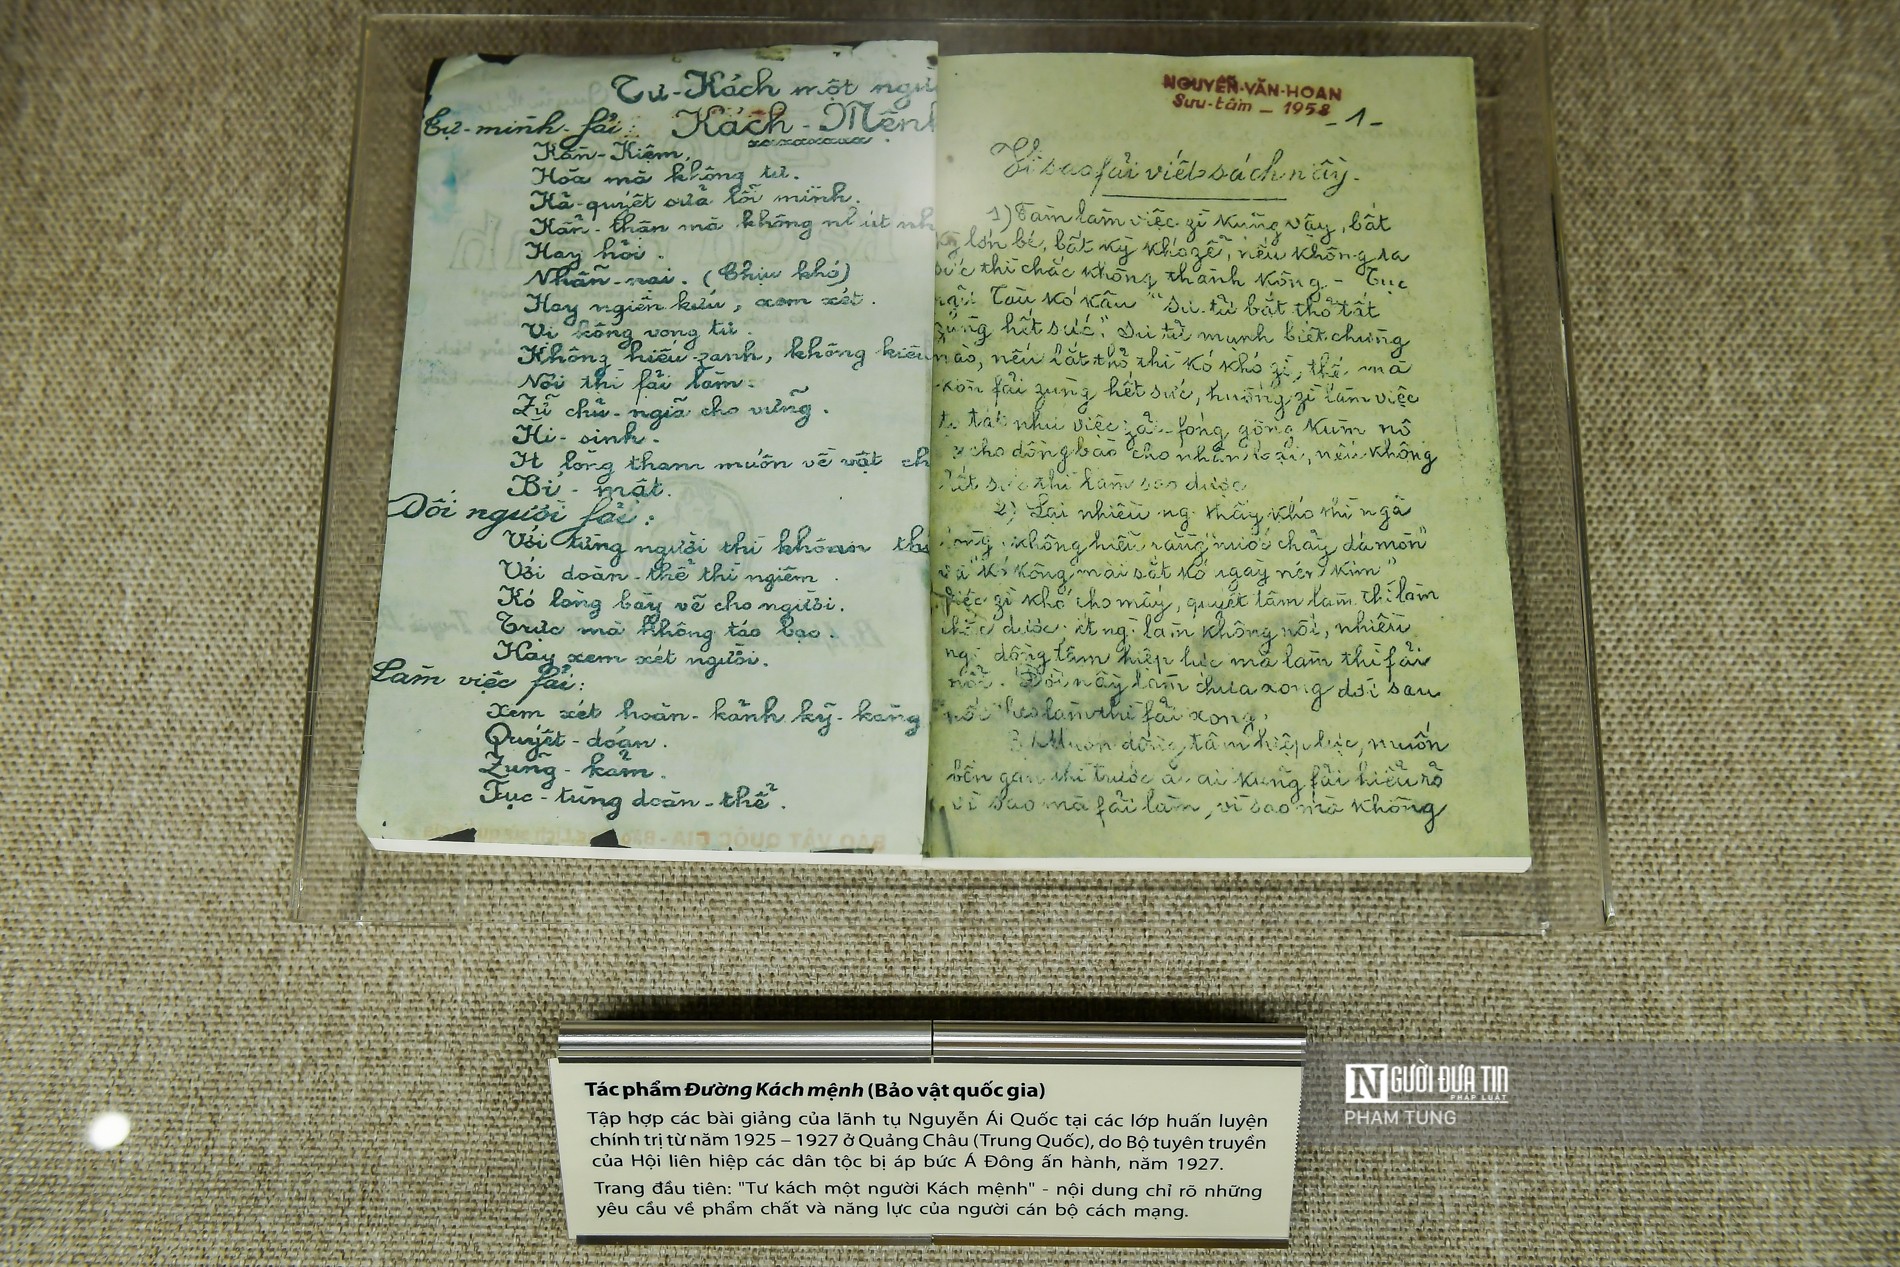 Tư-Kách một người
Kách-Mệnh
Tự-mình-fải:
Kần-Kiệm,
Hòa mà không tư.
Kả-quyết sửa lỗi mình.
Kẩn-thận mà không nhút nh
Hay hỏi.
Nhẫn-nại. (Chịu khó)
Hay ngiên kứu, xem xét.
Vị kông vong tư.
Không hiếu-zanh, không kiêu
Nói thì fải làm.
Zữ chủ-ngiã cho vững.
Hi-sinh.
It lòng tham muốn về vật ch
Bí-mật.
Đối người fải:
Với từng người thì khoan thứ
Với đoàn-thể thì ngiêm.
Kó lòng bày vẽ cho người.
Trực mà không táo bạo.
Hay xem xét người.
Làm việc fải:
Xem xét hoàn-kảnh kỹ-kàng
Quyết-đoán.
Zũng-kảm.
Fục-tùng đoàn-thể.
NGUYỄN-VĂN-HOAN
Sưu-tầm - 1958
-1-
Vì sao fải viết sách nầy.
1) Fàm làm việc gì kũng vậy, bất
lớn bé, bất kỳ khó zể, nếu không ra
sức thì chắc không thành kông. - Tục
Tàu kó kâu "Sư-tử bắt thỏ tất
zùng hết sức". Sư tử mạnh biết chừng
nào, nếu bắt thỏ thì kó khó zì, thế mà
kòn fải zùng hết sức, huống zì làm việc
to tát như việc zải-fóng gông kùm nô
cho đồng bào, cho nhân loại, nếu không
hết sức thì làm sao được
2) Lại nhiều ng. thấy khó thì ngã
lòng, không hiểu rằng "nước chảy đá mòn"
và "kó kông mài sắt kó ngày nên kim"
Việc zì khó cho mấy, quyết tâm làm thì làm
chắc được, ít ng. làm không nổi, nhiều
ng. đồng tâm hiệp lực mà làm thì fải
nổi. Đời nầy làm chưa xong đời sau
nối theo làm thì fải xong.
3) Muốn đồng tâm hiệp lực, muốn
bền gan thì trước ai kũng fải hiểu rõ
vì sao mà fải làm, vì sao mà không
Tác phẩm Đường Kách mệnh (Bảo vật quốc gia)
Tập hợp các bài giảng của lãnh tụ Nguyễn Ái Quốc tại các lớp huấn luyện
chính trị từ năm 1925 – 1927 ở Quảng Châu (Trung Quốc), do Bộ tuyên truyền
của Hội liên hiệp các dân tộc bị áp bức Á Đông ấn hành, năm 1927.
Trang đầu tiên: "Tư kách một người Kách mệnh" - nội dung chỉ rõ những
yêu cầu về phẩm chất và năng lực của người cán bộ cách mạng.
NGƯỜI ĐƯA TIN
PHÁP LUẬT
PHẠM TÙNG